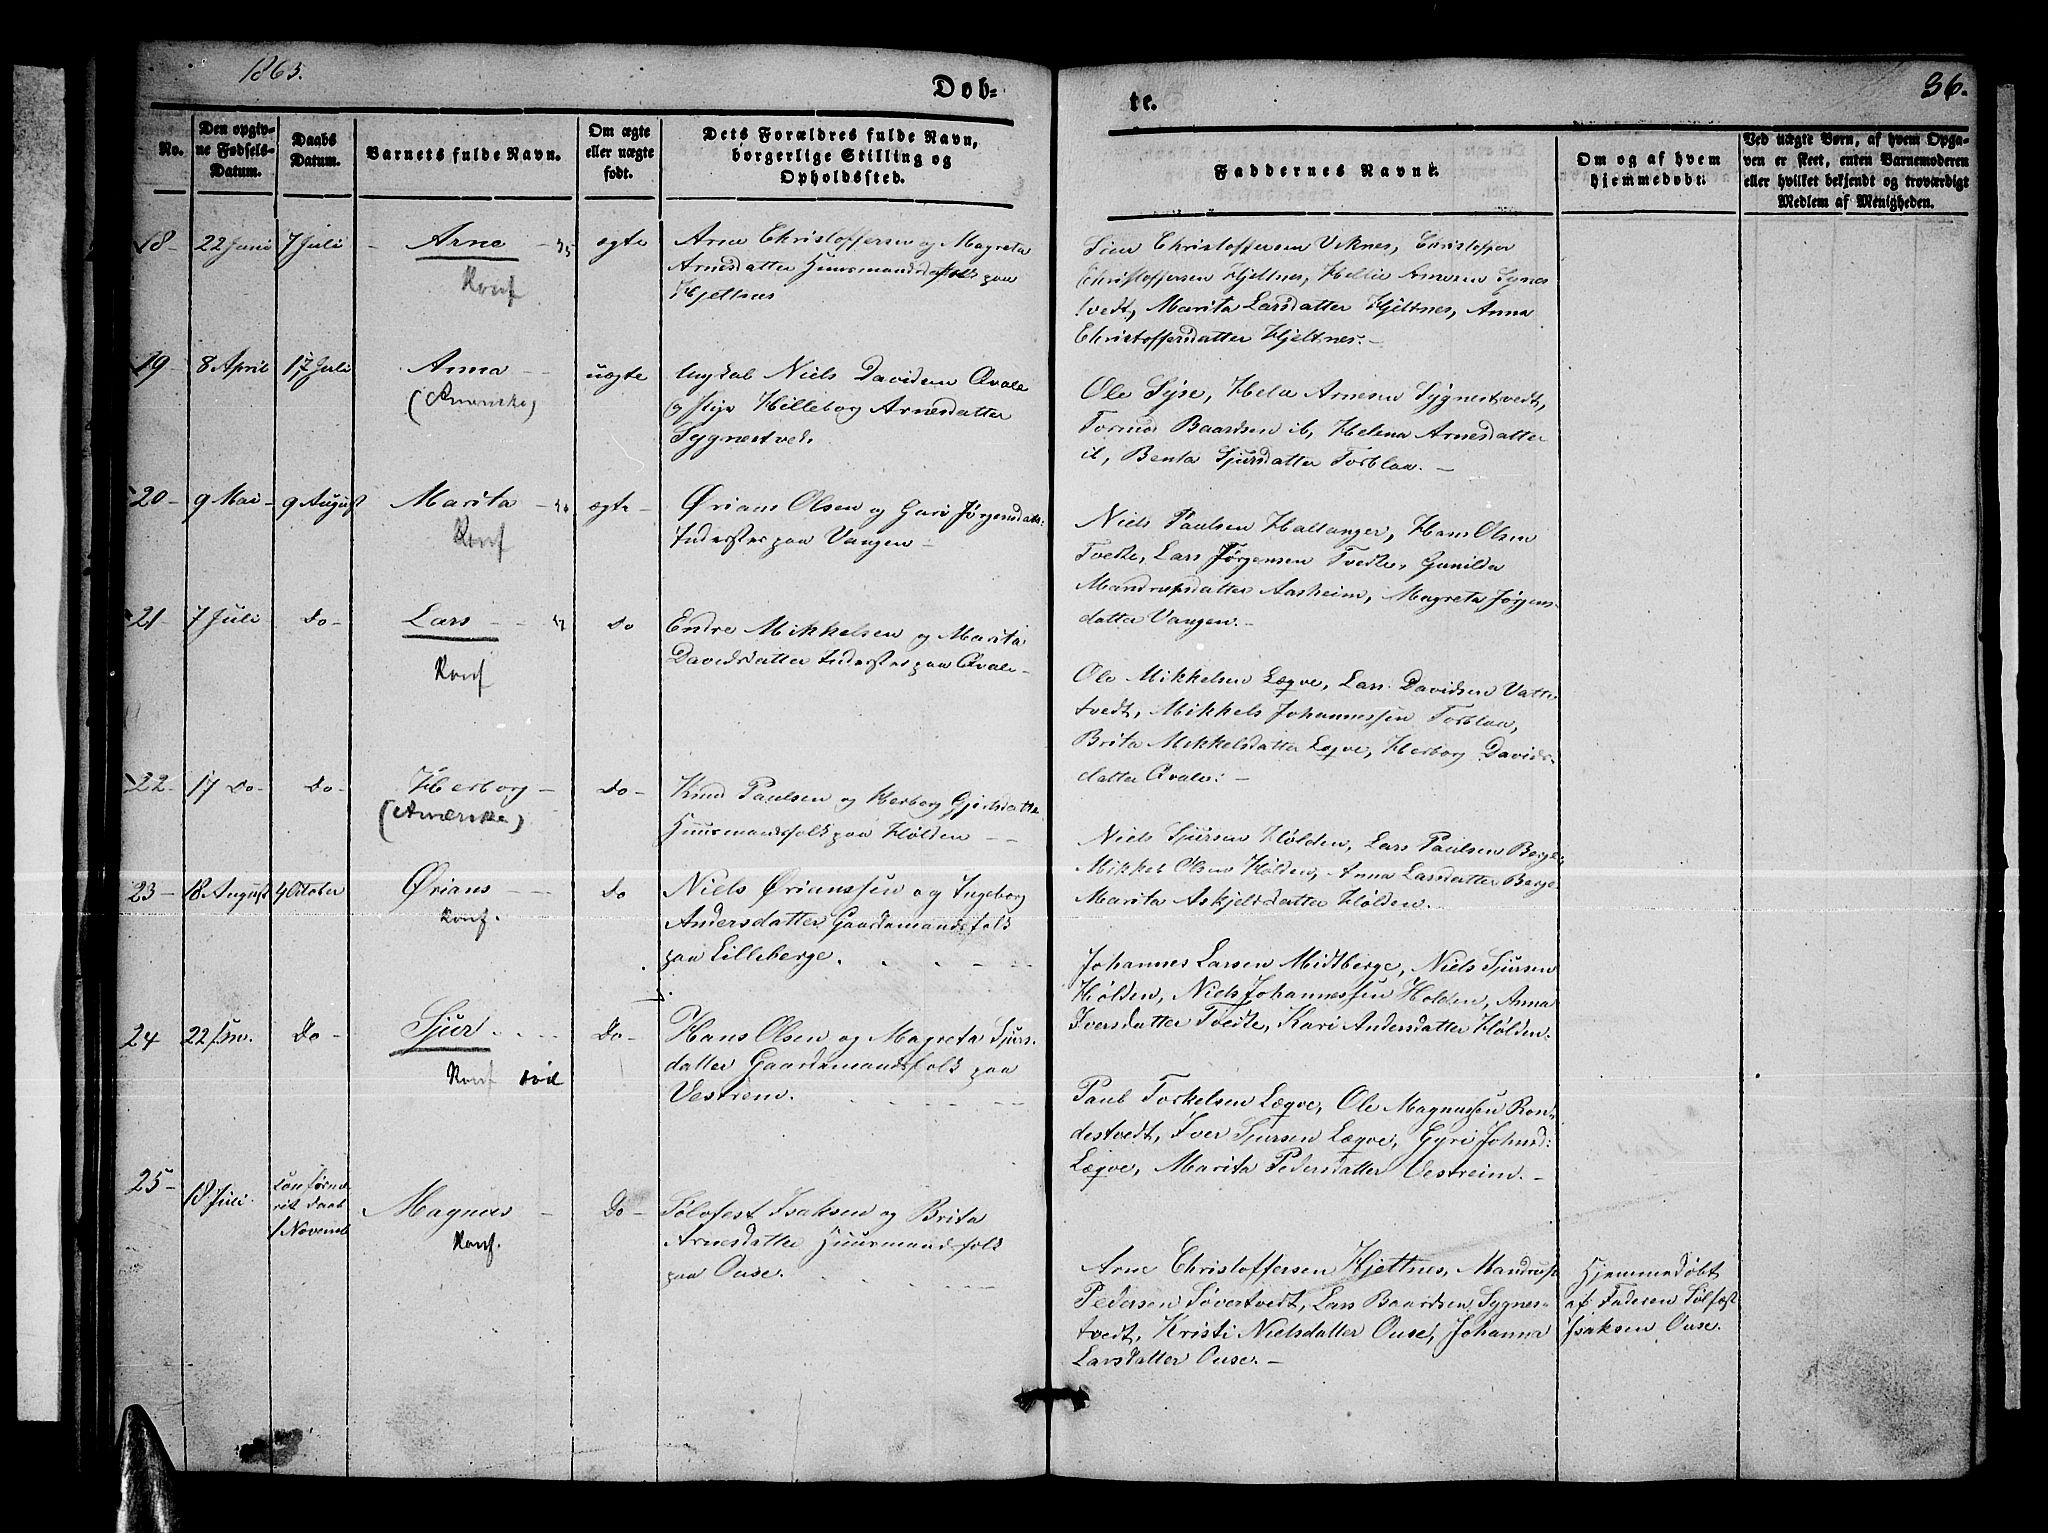 1865.
Døb=
te.
36.
No.
Den opgiv-
ne Fødsels-
Datum.
Daabs
Datum.
Barnets fulde Navn.
Om ægte
eller uægte
født.
Dets Forældres fulde Navn,
borgerlige Stilling og
Opholdssted.
Faddernes Navne.
Om og af hvem
hjemmedøbt.
Ved uægte Børn, af hvem Opga-
ven er skeet, enten Barnemoderen
eller hvilket bekjendt og troværdigt
Medlem af Menigheden.
18- 22 Juni 7 Juli - Arne - ægte
Konf
Arne Christoffersen og Magreta
Arnesdatter Huusmandsfolk paa
Hjeltnes
Christoffersen Viknes, Christoffer
Christoffersen Hjeltnes, Helie Arnesen Sygnes
tvedt, Marita Larsdatter Hjeltnes, Anna
Christoffersdatter Hjeltnes.-
19- 8 April 17 Juli Anna - uægte
(Amerika)
Ungkal Niels Davidsen Qvale
og Pige Hilleborg Arnesdatter
Sygnestved.
Ole Syse, Hela Arnesen Sygnestvedt,
Tormo Baardsen ib, Helena Arnesdatter
ib, Benta Sjursdatter Torblaa. -
20- 9 Mai- 9 August Marita - ægte -
Konf
Ørians Olsen og Guri Jørgensdatt:
Inderster paa Vangen -
Niels Paulsen Haltanger, Hans Olsen
Tvedte, Lars Jørgensen Tvedte, Gunilda
Mandrupsdatter Aasheim, Magreta Jørgens-
datter Vangen.-
21- 7 Juli Do- Lars - - Do
Konf
Endre Mikkelsen og Marita
Davidsdatter Inderster paa Qvale-
Ole Mikkelsen Lægve, Lars Davidsen Vatte
tvedt, Mikkels Johannessen Torblaa,
Brita Mikkelsdatter Lægve, Herborg Davids-
datter Qvale: -
22- 17 Do- Do- Herborg - Do-
(Amerika)
Knud Paulsen og Herborg
Huusmandsfolk paa Hølden - -
Niels Sjursen Hølden, Lars Paulsen Berge
Mikkel Olsen Hølden, Anna Larsdatter Berge
Marita Askjelsdatter Hølden.
23- 18 August 4 October Ørians - - Do
Konf.
Niels Øriansen og Ingeborg
Andersdatter Gaardmandsfolk
paa Lilleberge.
Johannes Larsen Midtberge, Niels Sjursen
Hølden, Niels Johannessen Holden, Anna
Iversdatter Tvedte, Kari Andersdatter Hølden.
24 22 Juni. Do- Sjur - - Do-
Konf
Hans Olsen og Magreta Sjurs-
datter Gaardmandsfolk paa
Vestreim.
Paul Torkelsen Lægve, Ole Magnussen Ron-
destvedt, Iver Sjursen Lægve, Gyri Johnsd:
Lægve, Marita Pedersdatter Vestreim. -
25- 18 Juli.
Magnus - Do-
Konf.
Sølvfest Isaksen og Brita
Arnesdatter Huusmandsfolk
paa Ouse.
Arne Christoffersen Hjeltnes, Mandrup
Pedersen Søvertvedt, Lars Baardsen Sygnes-
tvedt, Kristi Nielsdatter Ouse, Johanna
Larsdatter Ouse.-
Hjemmedøbt
af Faderen Sølfæst
Isaksen Ouse.